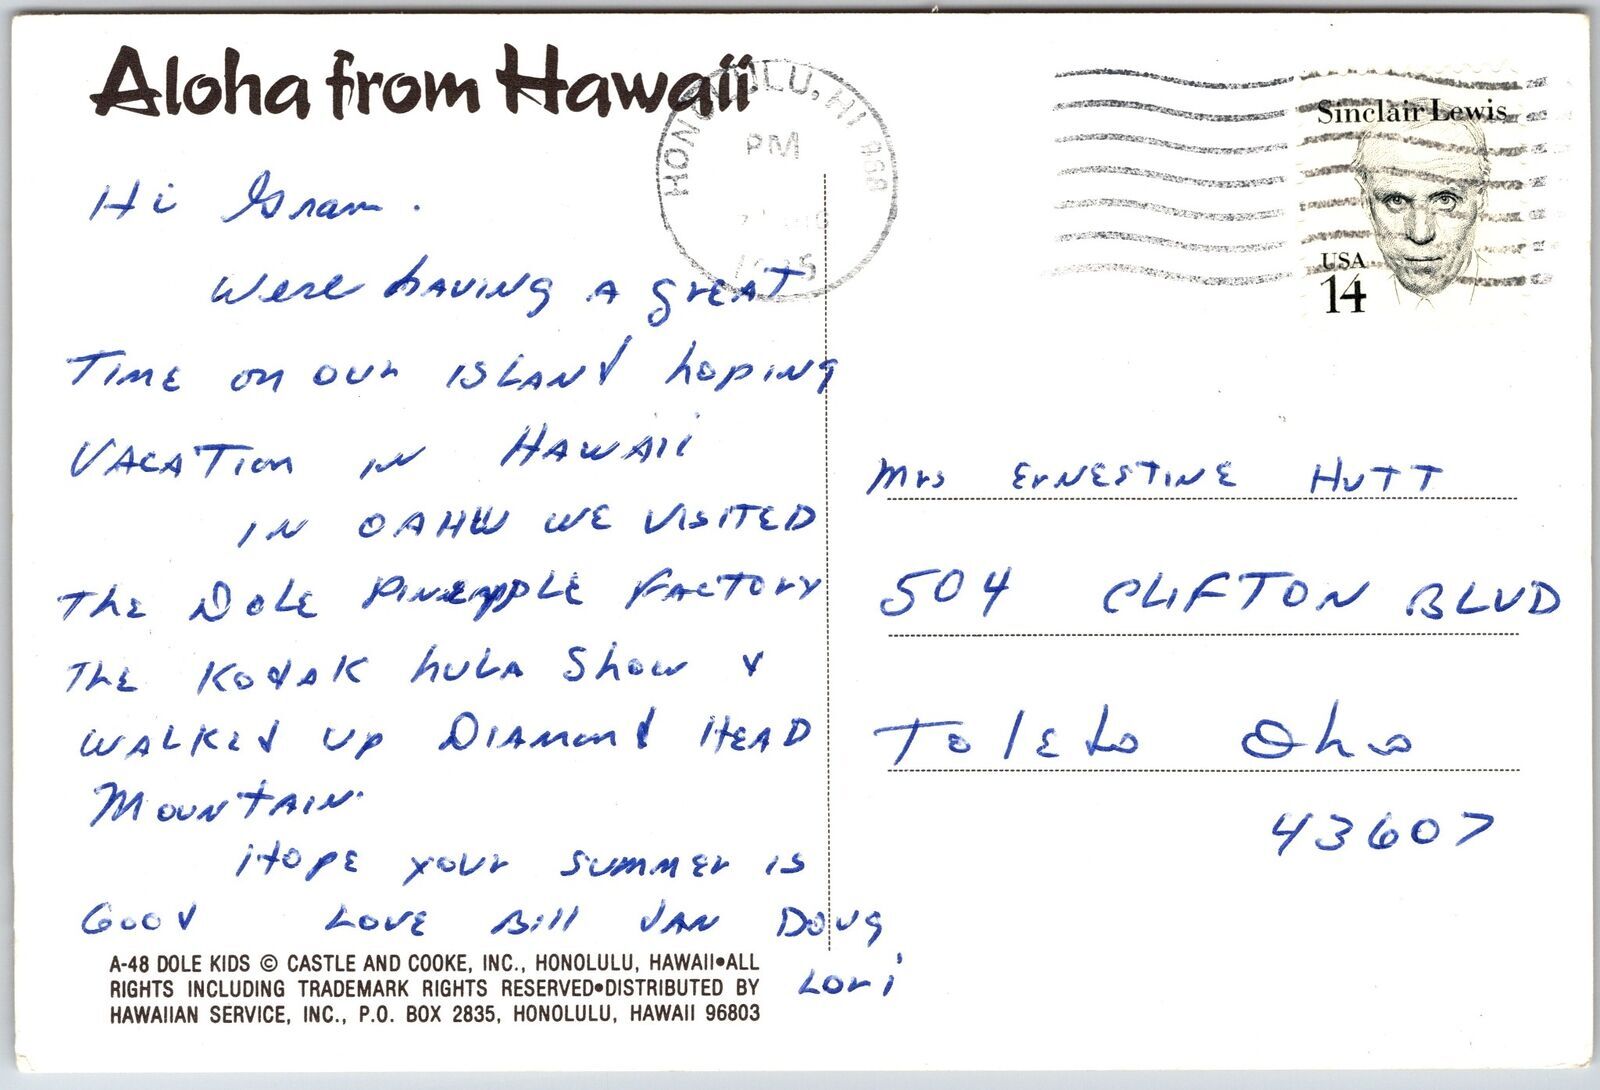 Aloha from Hawaii
HONOLULU, HI 968
PM
Sinclair Lewis
USA
14
Hi Gram.
Were having a great
Time on our island hoping
Vacation in Hawaii
In Oahu we visited
The Dole Pineapple Factory
The Kodak hula show &
walked up Diamond Head
Mountain.
Hope your summer is
Good Love Bill Jan Doug
Lori
Mrs Ernestine Hutt
504 Clifton Blvd
Toledo Ohio
43607
A-48 DOLE KIDS © CASTLE AND COOKE, INC., HONOLULU, HAWAII•ALL
RIGHTS INCLUDING TRADEMARK RIGHTS RESERVED•DISTRIBUTED BY
HAWAIIAN SERVICE, INC., P.O. BOX 2835, HONOLULU, HAWAII 96803